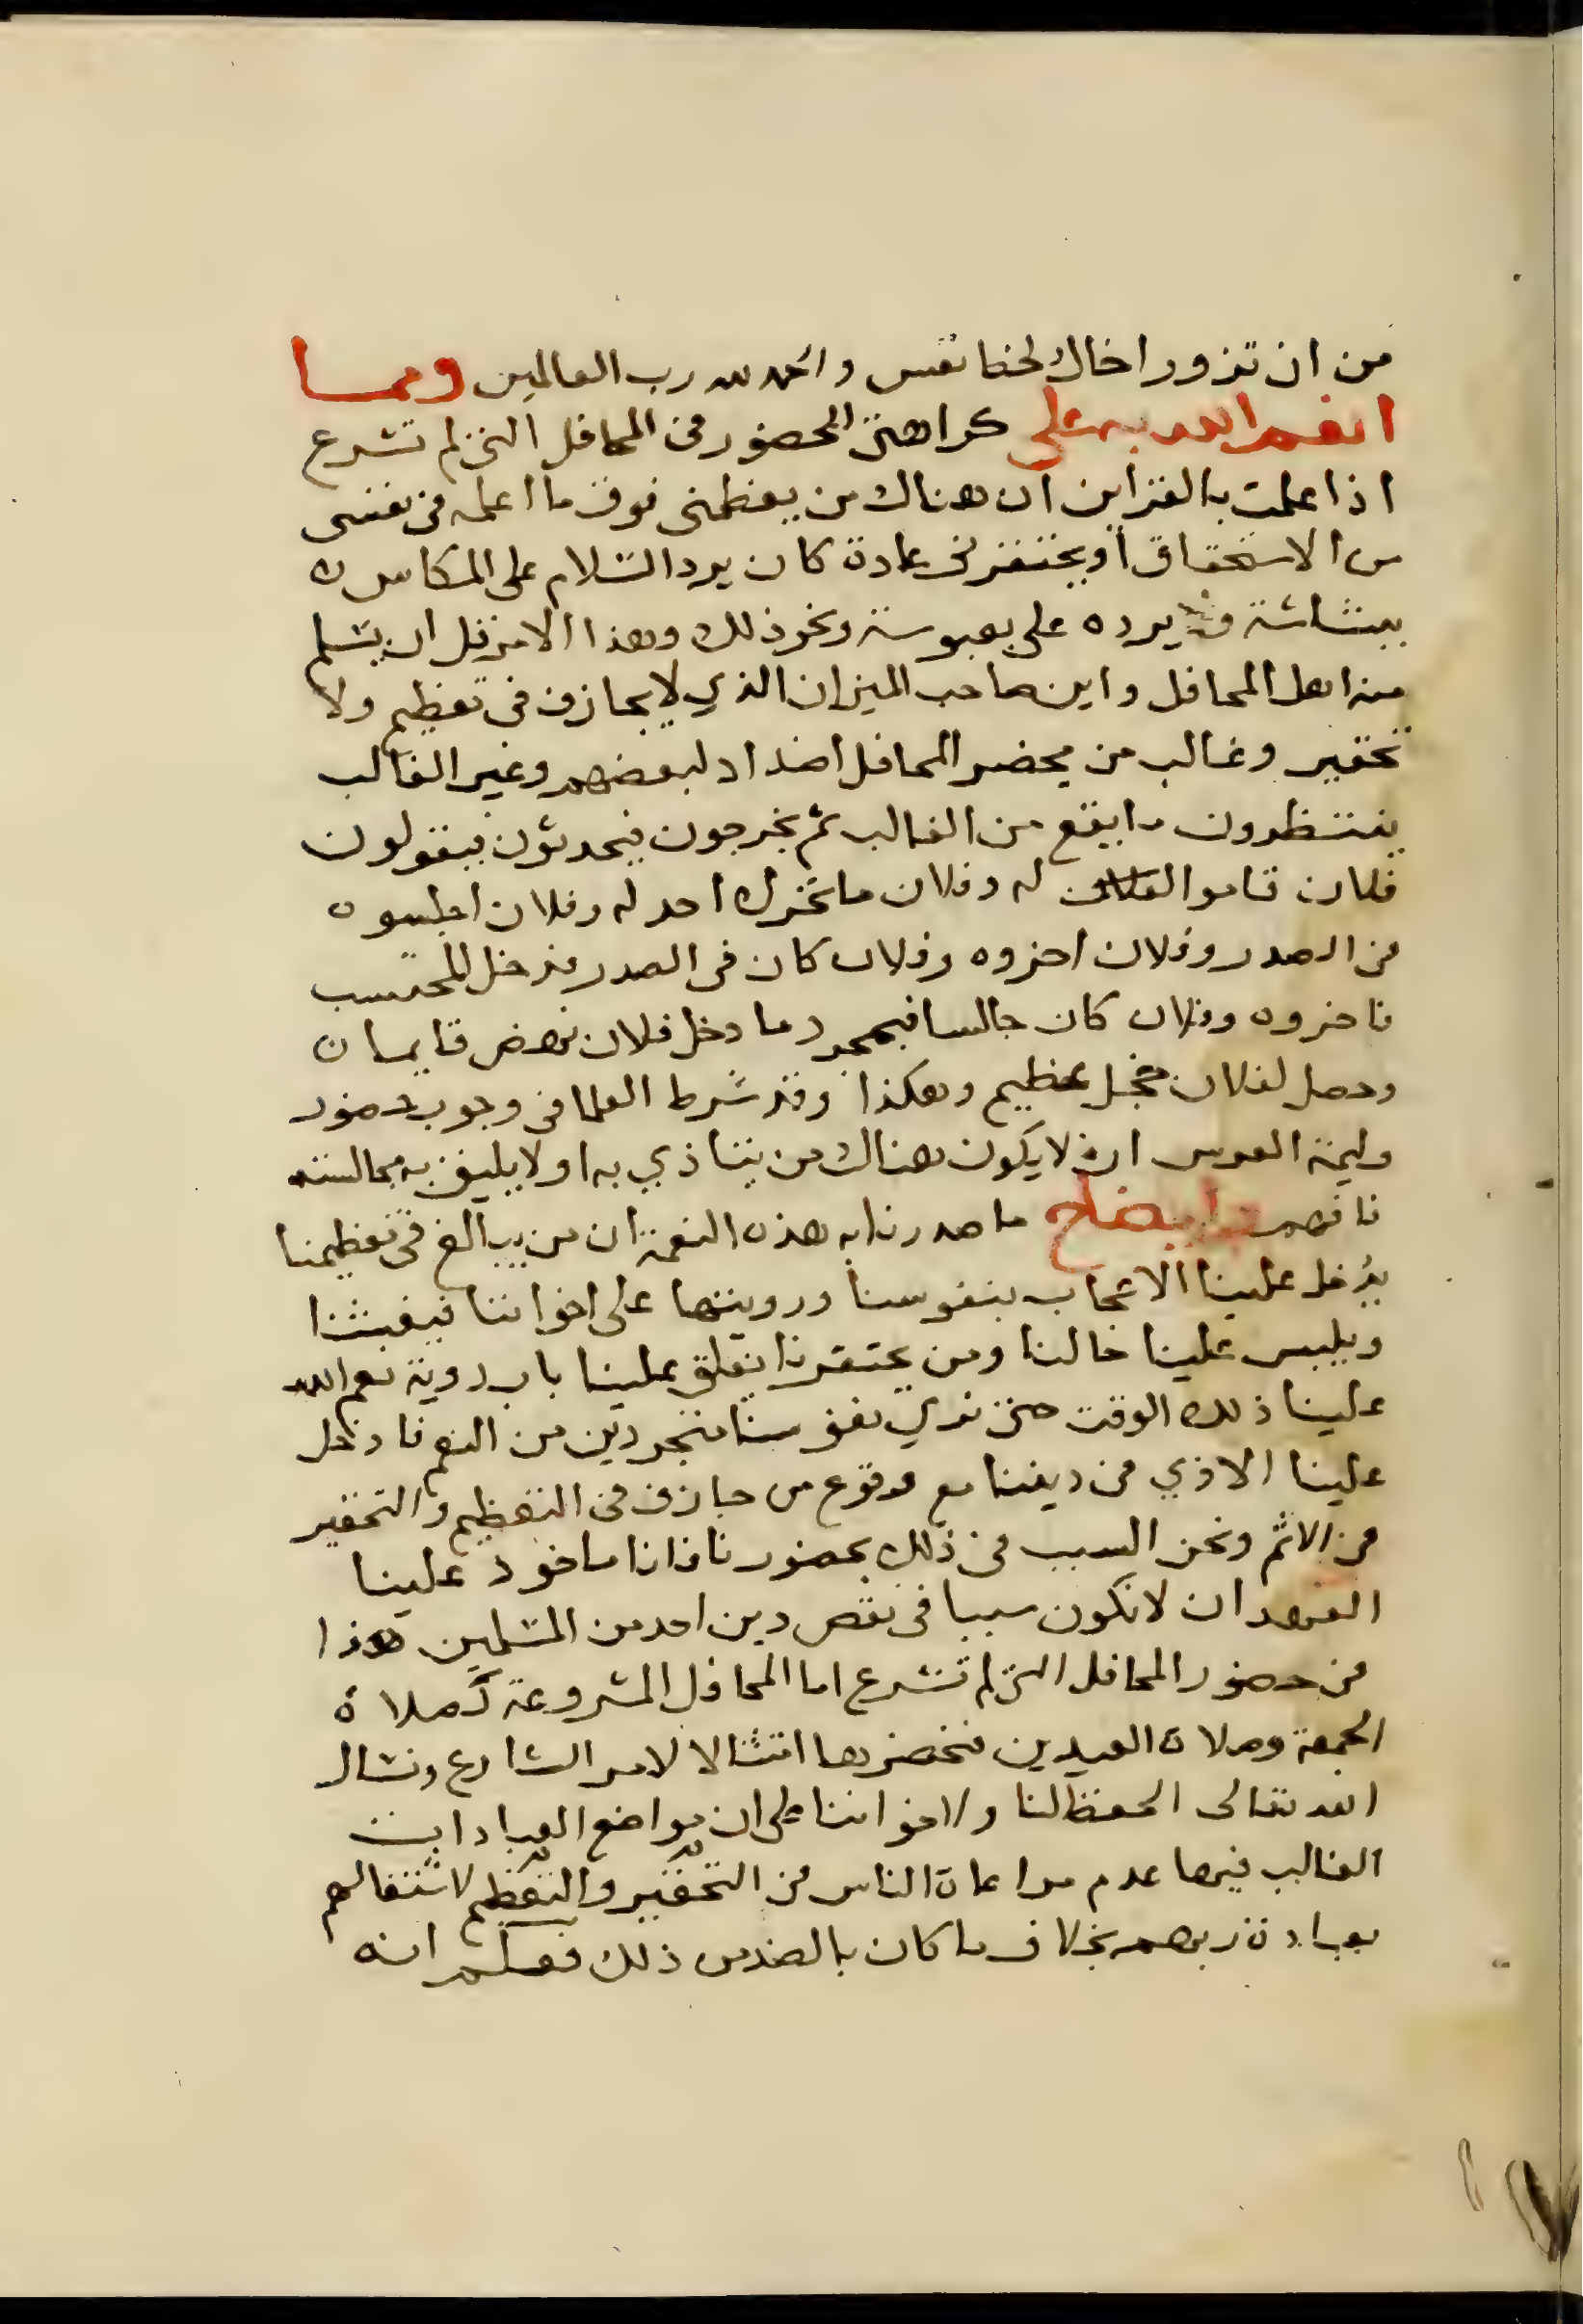 من ان تزور اخاك لحظ نفس والحمد لله رب العالمين ومما
انعم الله به على كراهتى الحضور فى المحافل التى لم تشرع
اذا علمت بالقراين ان هناك من يعظمنى فوق ما اعلمه فى نفسى
من الاستحقاق او يحتقرنى عادة كان يرد السلام على المكاس
ببشاشة ويرده على بعبوسة ونحو ذلك وهذا الامر قل ان يسلم
منه اهل المحافل واين صاحب الميزان الذي لا يجازف فى تعظيم ولا
تحقير وغالب من يحضر المحافل اضداد لبعضهم وغير الغالب
ينتظرون ما يقع من الغالب ثم يخرجون فيحدثون فيقولون
فلان قاموا له وفلان ما تحرك احد له وفلان اجلسوه
فى الصدر وفلان اخروه وفلان كان فى الصدر فدخل المحتسب
فاخروه وفلان كان جالسا فبمجرد ما دخل فلان نهض قايما
وحصل لفلان خجل عظيم وهكذا وقد شرط العلما فى وجوب حضور
وليمة العرس ان لا يكون هناك من يتاذي به او لا يليق به مجالسته
فافهم وايضاح ما صدرنا به هذه النعمة ان من يبالغ فى تعظيمنا
يدخل علينا الاعجاب بنفوسنا ورويتها على اخواننا فيغشنا
ويلبس علينا حالنا ومن يحتقرنا يغلق علينا باب روية نعم الله
علينا ذلك الوقت حتى نري نفوسنا متجردين من النعم فادخل
علينا الاذي فى ديننا مع وقوع من جازف فى التعظيم والتحقير
فى الاثم ونحن السبب فى ذلك بحضورنا فاذا ماخوذ علينا
العهد ان لا نكون سببا فى نقص دين احد من المسلمين هذا
فى حضور المحافل التى لم تشرع اما المحافل المشروعة كصلاة
الجمعة وصلاة العيدين فنحضرها امتثالا لامر الشارع ونسال
الله تعالى الحفظ لنا ولاخواننا على ان مواضع العبادات
الغالب فيها عدم مراعاة الناس فى التحقير والتعظيم لاشتغالهم
بعبادة ربهم بخلاف ما كان بالضد من ذلك فعلم انه